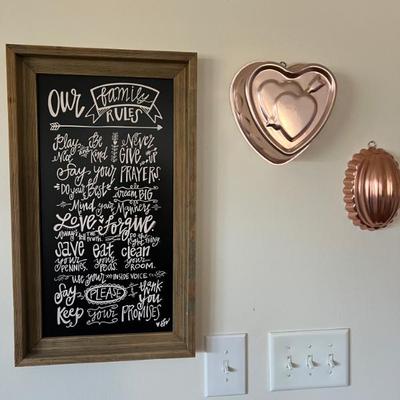 Our family
RULES
Play Be Never
Nice and Kind GIVE up
Say your PRAYERS
Do your Best DREAM BIG
Mind your Manners
Love & forgive.
Always tell the truth. Do the Right Thing
SAVE eat clean
your your your
PENNIES. PEAS. ROOM.
use your INSIDE VOICE
Say PLEASE & thank you
Keep your PROMISES